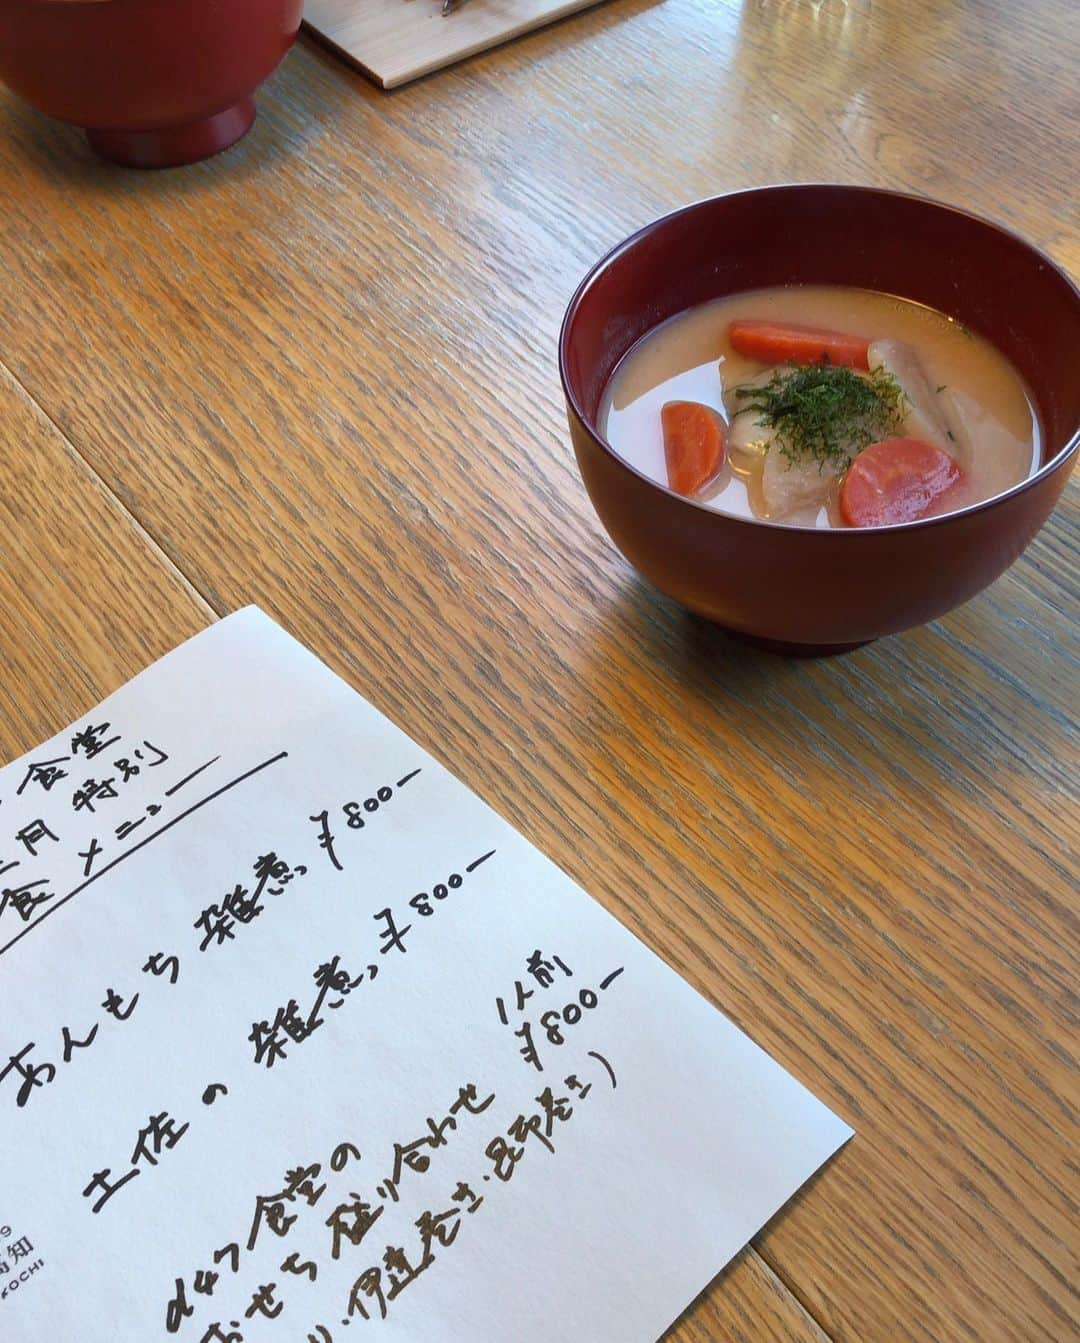 食堂
正月 特別
食 メニュー
あんもち 雑煮 ¥800ー
土佐の 雑煮 ¥800ー
d47食堂の
おせち 盛り合わせ 1人前 ¥800ー
伊達巻き・昆布巻き)
高知
KOCHI